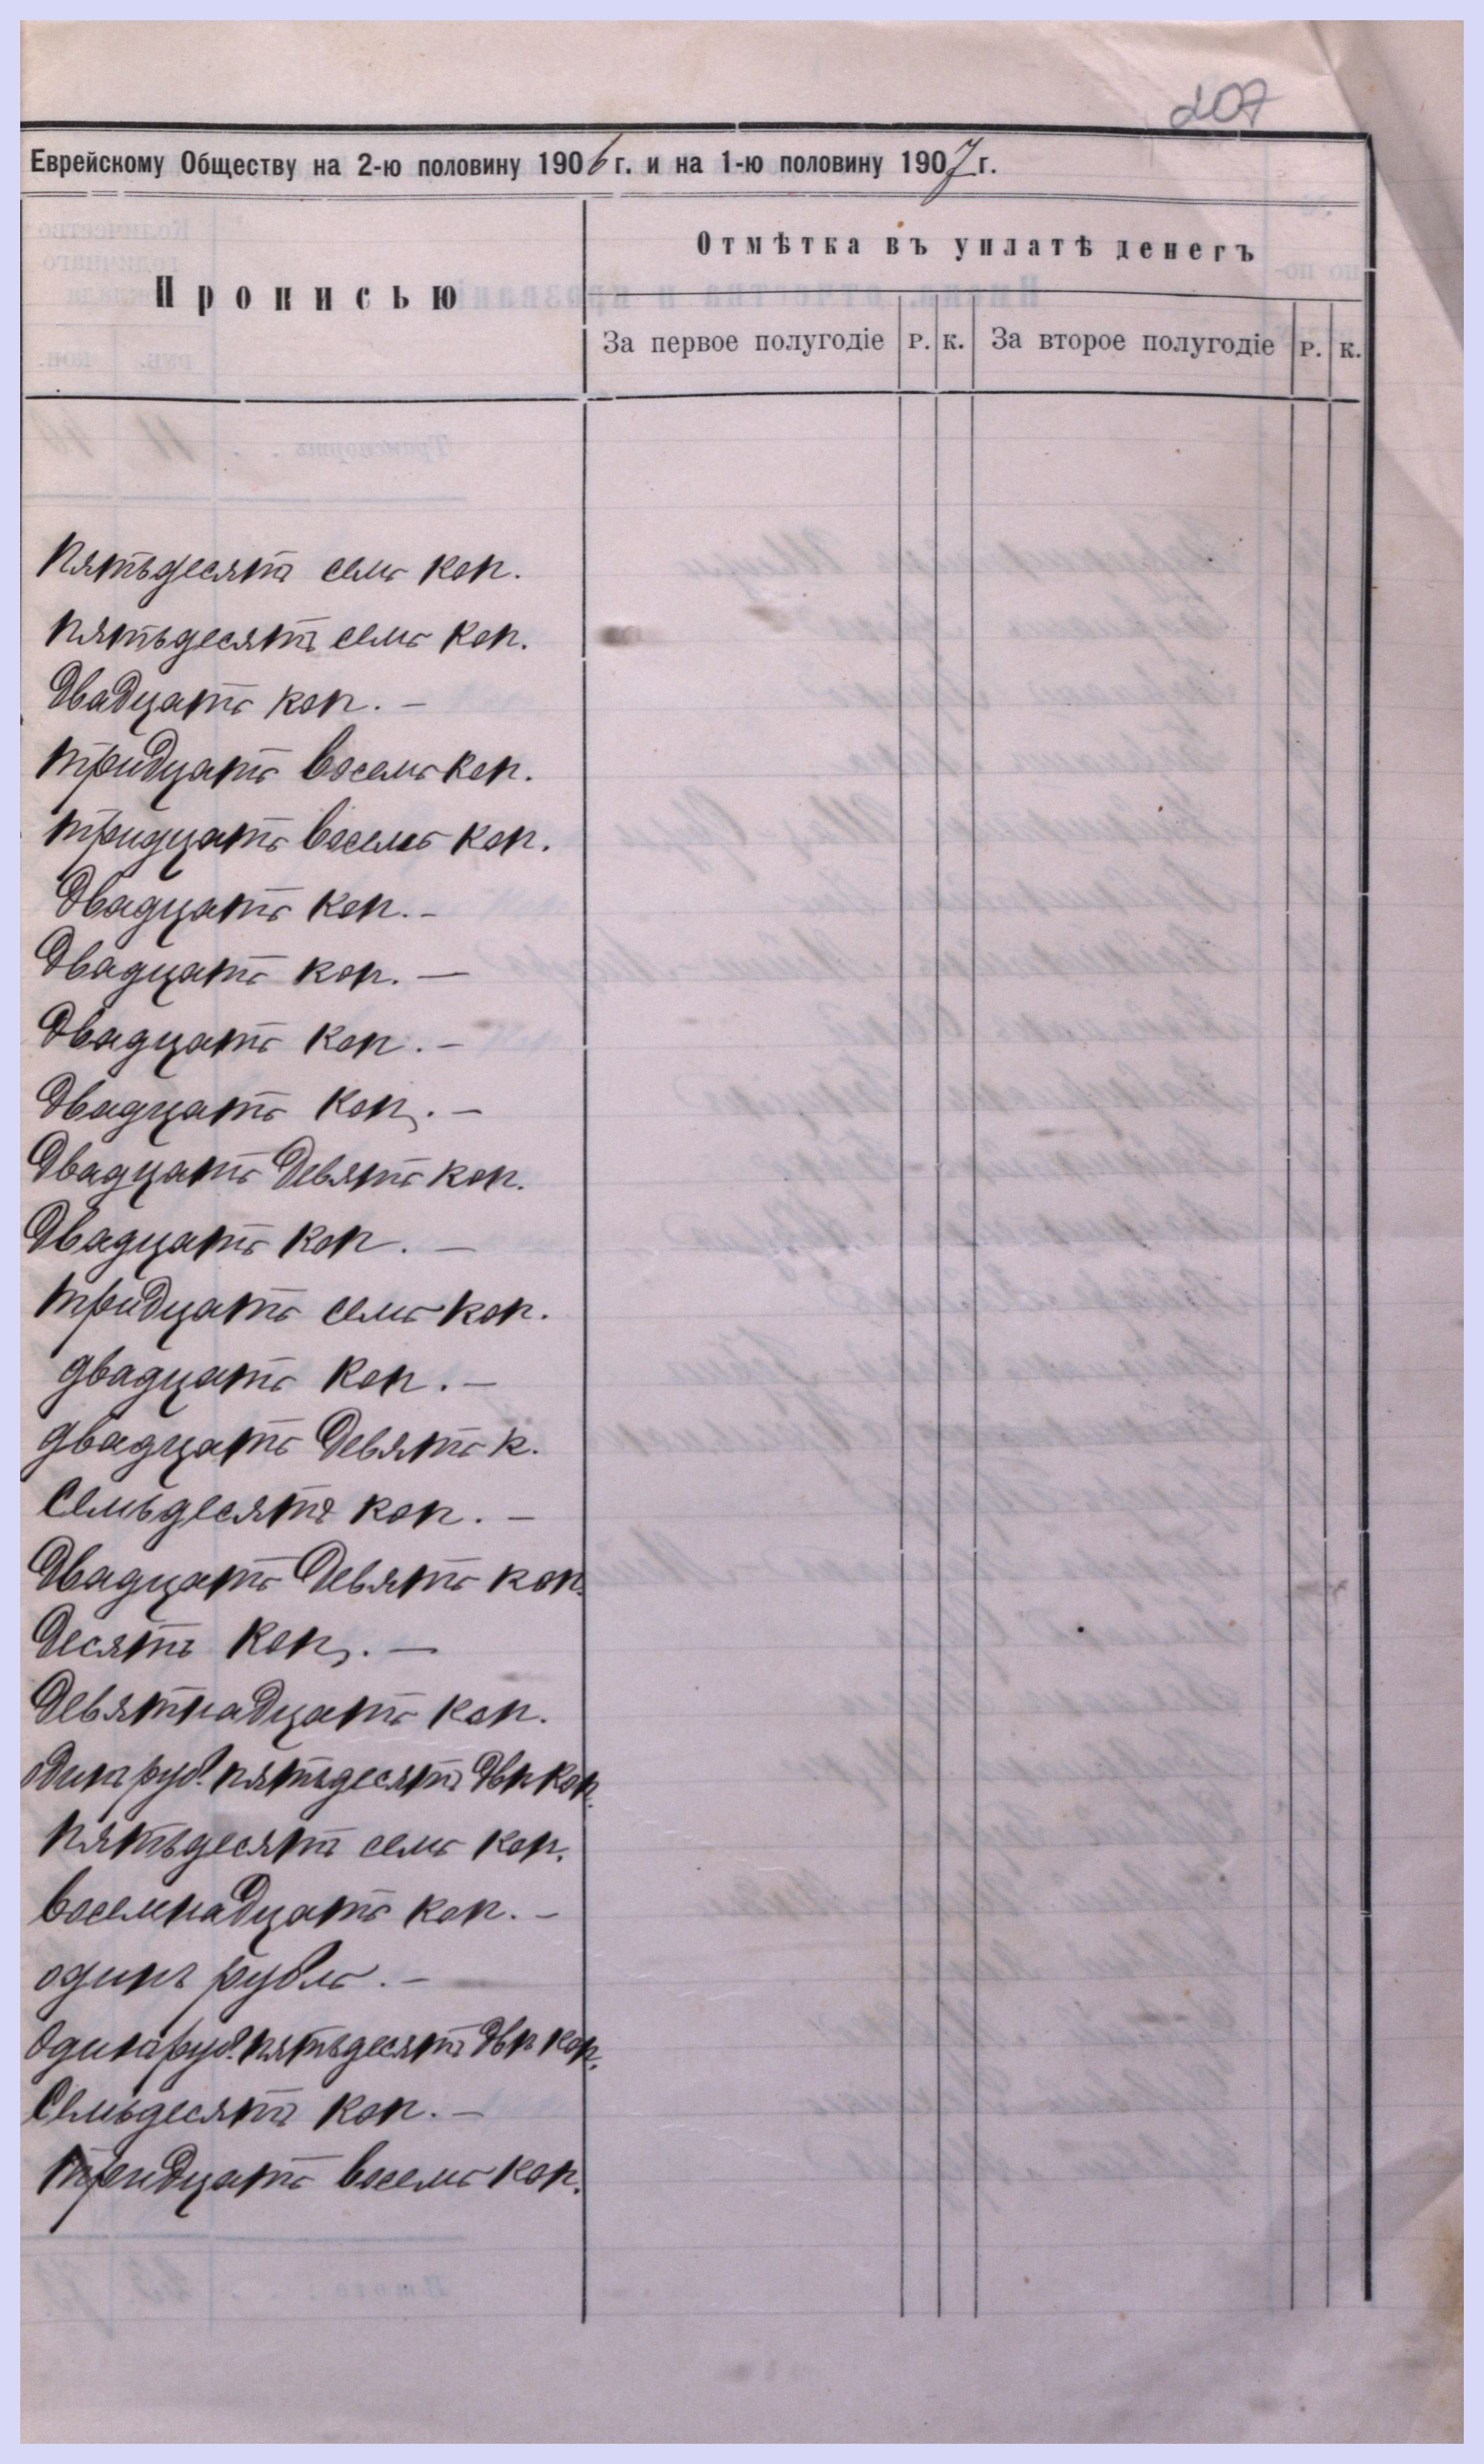 207
Еврейскому Обществу на 2-ю половину 1906 г. и на 1-ю половину 1907 г.
Прописью
Отмѣтка въ уплатѣ денегъ
За первое полугодіе Р. К. За второе полугодіе Р. К.
Пятьдесятъ семь коп.
Пятьдесятъ семь коп.
Двадцать коп. –
тридцать восемь коп.
тридцать восемь коп.
Двадцать коп. –
Двадцать коп. –
Двадцать коп. –
Двадцать коп. –
Двадцать Девять коп.
Двадцать коп. –
тридцать семь коп.
двадцать коп. –
двадцать Девять к.
Семьдесятъ коп. –
Двадцать Девять коп.
Десять коп. –
Девятнадцать коп.
один руб. пятьдесятъ Двѣ коп.
Пятьдесятъ семь коп.
восемнадцать коп. –
один рубль. –
Один руб. пятьдесятъ Двѣ коп.
Семьдесятъ коп. –
тридцать восемь коп.